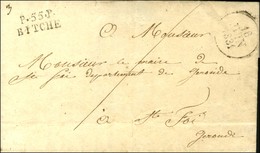 P.55.P.
BITCHE
A Monsieur
Monsieur le maire de
Ste foi departement de Gironde
a Ste Foi
Gironde